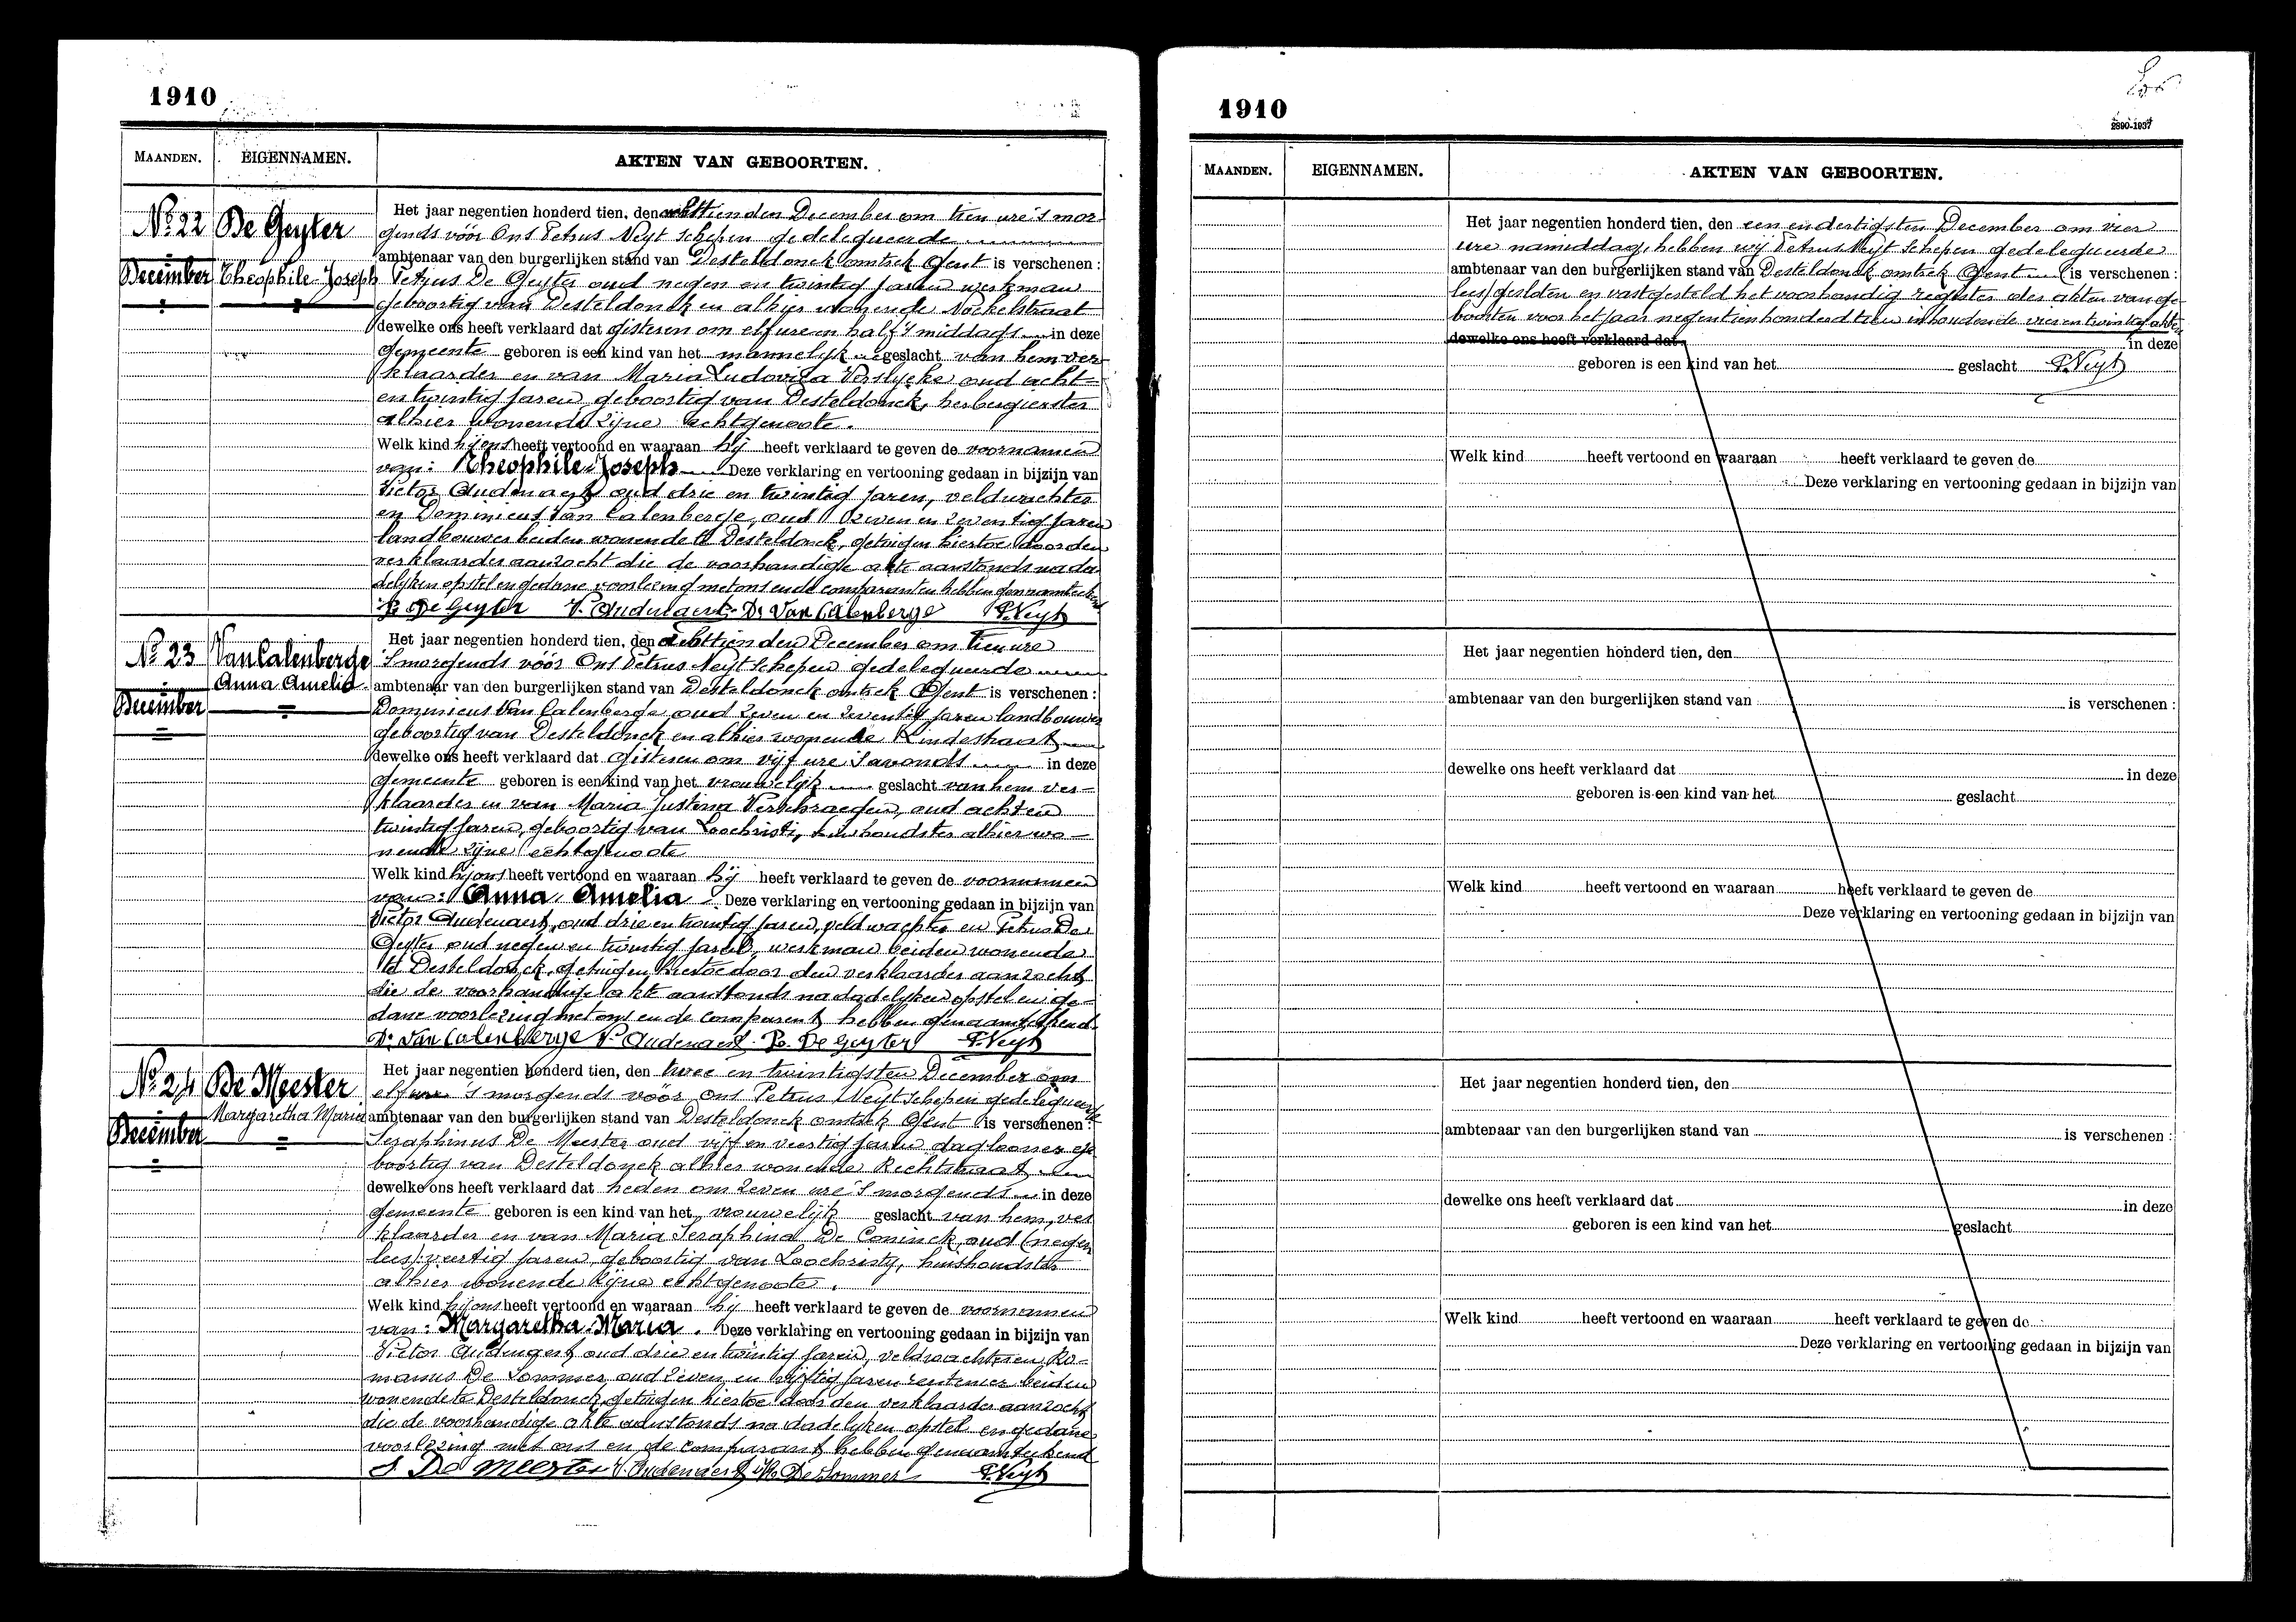 1910
MAANDEN. EIGENNAMEN. AKTEN VAN GEBOORTEN.
No 22 De Geyter
December Theophile-Joseph
Het jaar negentien honderd tien, den achttienden December om tien ure 's mor-
gends vóór Ons Petrus Neyt Schepen gedelegueerde
ambtenaar van den burgerlijken stand van Desteldonck omtrek Gent is verschenen :
Petrus De Geyter oud negen en twintig jaren werkman
geboortig van Desteldonck en alhier wonende Nockelstraat
dewelke ons heeft verklaard dat gisteren om elf ure en half 's middags in deze
gemeente geboren is een kind van het mannelijk geslacht van hem ver-
klaarder en van Maria Ludovica Verslycke oud acht-
en twintig jaren, geboortig van Desteldonck, herbergierster
alhier wonende zijne echtgenoote.
Welk kind hij ons heeft vertoond en waaraan hij heeft verklaard te geven de voornamen
van: Theophile-Joseph Deze verklaring en vertooning gedaan in bijzijn van
Victor Audenaert oud drie en twintig jaren, veldwachter
en Dominicus Van Calenberge, oud zeven en zeventig jaren
landbouwer beiden wonende te Desteldonck, getuigen hiertoe door den
verklaarder aanzocht die de voorhandige akte aanstonds na da-
delijken opstel en gedane voorlezing met ons en de comparanten hebben genaamteekend
P. De Geyter V. Audenaert D. Van Calenberge P. Neyt
No 23 Van Calenberge
Anna Amelia
December
Het jaar negentien honderd tien, den achttienden December om tien ure
's morgends vóór Ons Petrus Neyt Schepen gedelegueerde
ambtenaar van den burgerlijken stand van Desteldonck omtrek Gent is verschenen :
Dominicus Van Calenberge oud zeven en zeventig jaren landbouwer
geboortig van Desteldonck en alhier wonende Lindestraat
dewelke ons heeft verklaard dat gisteren om vijf ure 's avonds in deze
gemeente geboren is een kind van het vrouwelijk geslacht van hem ver-
klaarder en van Maria Justina Verschraegen, oud acht en
twintig jaren, geboortig van Loochristi, huishoudster alhier wo-
nende zijne echtgenoote
Welk kind hij ons heeft vertoond en waaraan hij heeft verklaard te geven de voornamen
van: Anna Amelia Deze verklaring en vertooning gedaan in bijzijn van
Victor Audenaert, oud drie en twintig jaren, veldwachter en Petrus De
Geyter oud negen en twintig jaren, werkman beiden wonende
te Desteldonck, getuigen hiertoe door den verklaarder aanzocht
die de voorhandige akte aanstonds na dadelijken opstel en ge-
dane voorlezing met ons en de comparant hebben genaamteekend
D. Van Calenberge V. Audenaert P. De Geyter P. Neyt
No 24 De Meester
Margaretha Maria
December
Het jaar negentien honderd tien, den twee en twintigsten December om
elf ure 's morgends vóór ons Petrus Neyt Schepen gedelegueerde
ambtenaar van den burgerlijken stand van Desteldonck omtrek Gent is verschenen :
Seraphinus De Meester oud vijf en veertig jaren daglooner ge
boortig van Desteldonck alhier wonende Rechtstraat
dewelke ons heeft verklaard dat heden om zeven ure 's morgends in deze
gemeente geboren is een kind van het vrouwelijk geslacht van hem, ver
klaarder en van Maria Seraphina De Coninck, oud (negen
lees) veertig jaren, geboortig van Loochristy, huishoudster
alhier wonende zijne echtgenoote.
Welk kind hij ons heeft vertoond en waaraan hij heeft verklaard te geven de voornamen
van: Margaretha-Maria. Deze verklaring en vertooning gedaan in bijzijn van
Victor Audenaert oud drie en twintig jaren, veldwachter en Ro-
manus De Sommer oud zeven en vijftig jaren rentenier beiden
wonende te Desteldonck getuigen hiertoe door den verklaarder aanzocht
die de voorhandige akte aanstonds na dadelijken opstel en gedane
voorlezing met ons en de comparant hebben genaamteekend
S. De Meester V. Audenaert R. De Sommer P. Neyt
1910
2890-1937
MAANDEN. EIGENNAMEN. AKTEN VAN GEBOORTEN.
Het jaar negentien honderd tien, den een en dertigsten December om vier
ure namiddag, hebben wij Petrus Neyt Schepen gedelegueerde
ambtenaar van den burgerlijken stand van Desteldonck omtrek Gent (is verschenen :
lees) gesloten en vastgesteld het voorhandig register der akten van ge-
boorten voor het jaar negentienhonderd tien inhoudende vier en twintig akten
dewelke ons heeft verklaard dat in deze
geboren is een kind van het geslacht P. Neyt
Welk kind heeft vertoond en waaraan heeft verklaard te geven de
Deze verklaring en vertooning gedaan in bijzijn van
Het jaar negentien honderd tien, den
ambtenaar van den burgerlijken stand van is verschenen :
dewelke ons heeft verklaard dat in deze
geboren is een kind van het geslacht
Welk kind heeft vertoond en waaraan heeft verklaard te geven de
Deze verklaring en vertooning gedaan in bijzijn van
Het jaar negentien honderd tien, den
ambtenaar van den burgerlijken stand van is verschenen :
dewelke ons heeft verklaard dat in deze
geboren is een kind van het geslacht
Welk kind heeft vertoond en waaraan heeft verklaard te geven de
Deze verklaring en vertooning gedaan in bijzijn van